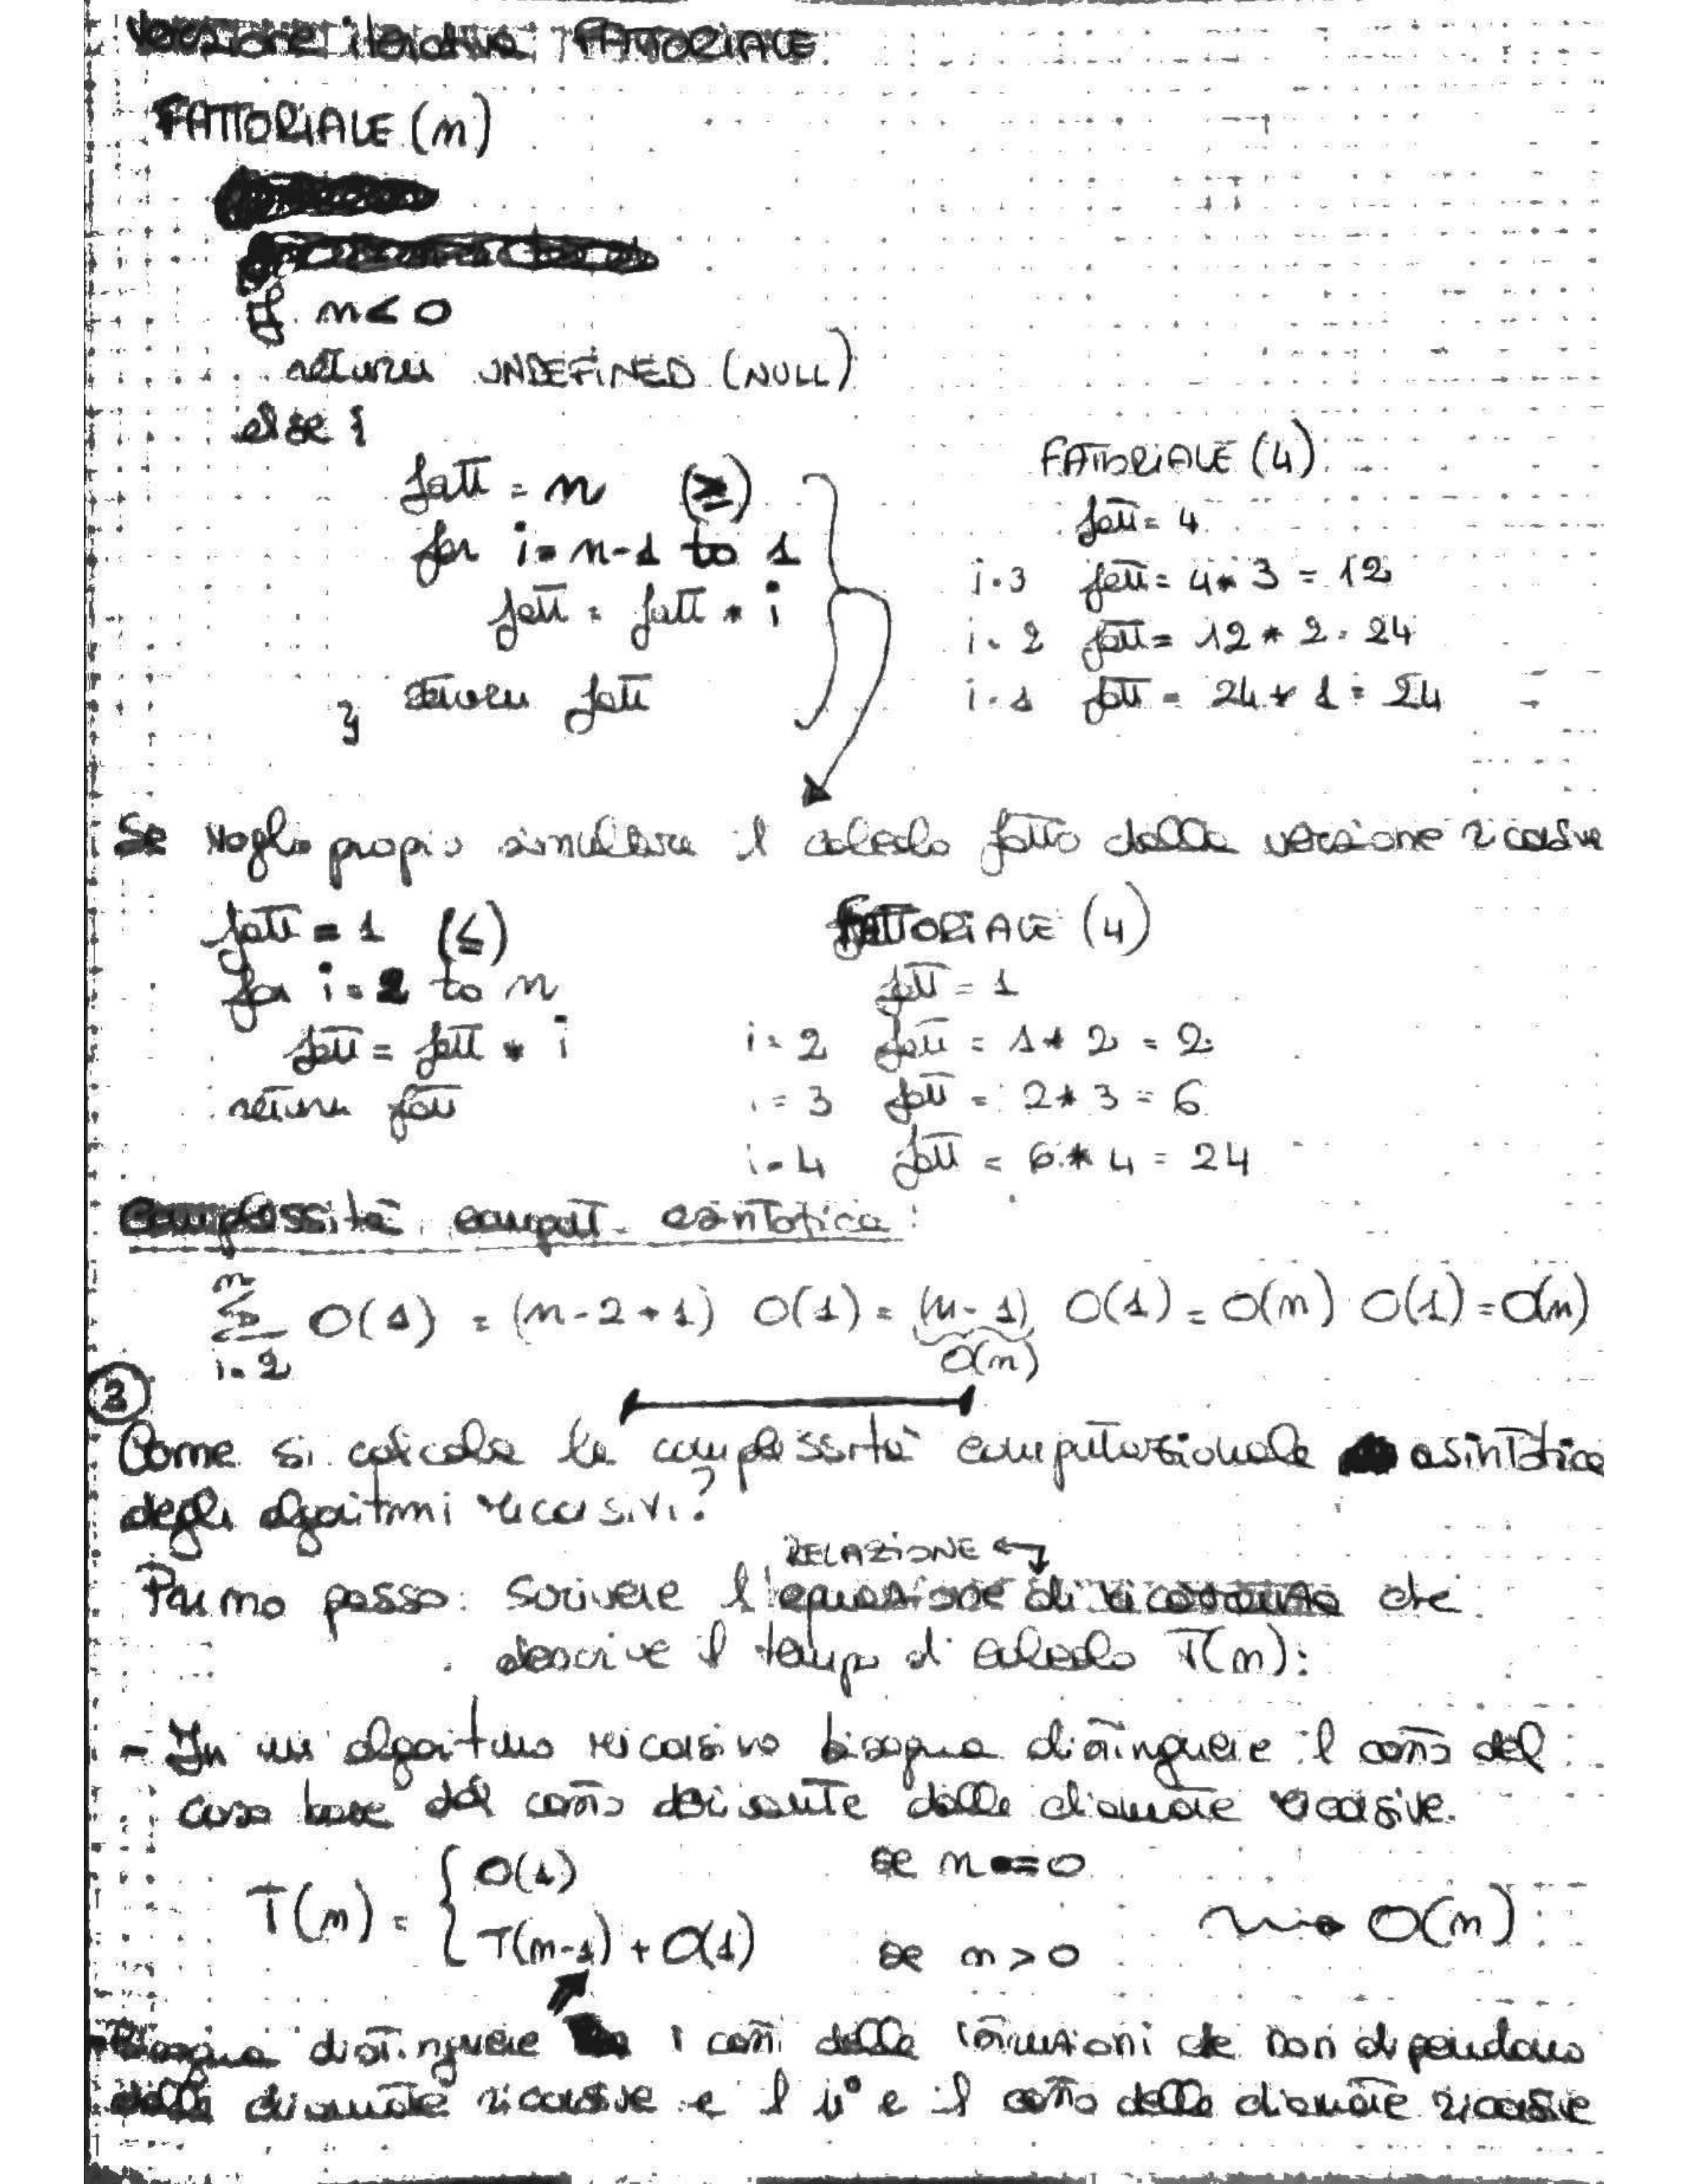 Versione iterativa FATTORIALE
FATTORIALE (n)
if n<0
return UNDEFINED (NULL)
else {
fatt = n (≥)
for i = n-1 to 1
fatt = fatt * i
return fatt
}
FATTORIALE (4)
fatt = 4
i=3 fatt = 4*3 = 12
i=2 fatt = 12*2 = 24
i=1 fatt = 24*1 = 24
Se voglio proprio simulare il calcolo fatto dalla versione ricorsiva
fatt = 1 (≤)
for i=2 to n
fatt = fatt * i
return fatt
FATTORIALE (4)
fatt = 1
i=2 fatt = 1*2 = 2
i=3 fatt = 2*3 = 6
i=4 fatt = 6*4 = 24
Complessità comput. asintotica:
n
∑ O(1) = (n-2+1) O(1) = (n-1) O(1) = O(n) O(1) = O(n)
i=2 O(n)
3
Come si calcola la complessità computazionale asintotica
degli algoritmi ricorsivi?
RELAZIONE
Primo passo: scrivere l'equazione di ricorrenza che
descrive il tempo di calcolo T(n):
- In un algoritmo ricorsivo bisogna distinguere il costo del
caso base dal costo derivante dalle chiamate ricorsive.
T(n) = { O(1) se n==0
T(n-1) + O(1) se n>0 ⇝ O(n)
- Bisogna distinguere i costi delle istruzioni che non dipendono
dalle chiamate ricorsive e il n° e il costo delle chiamate ricorsive